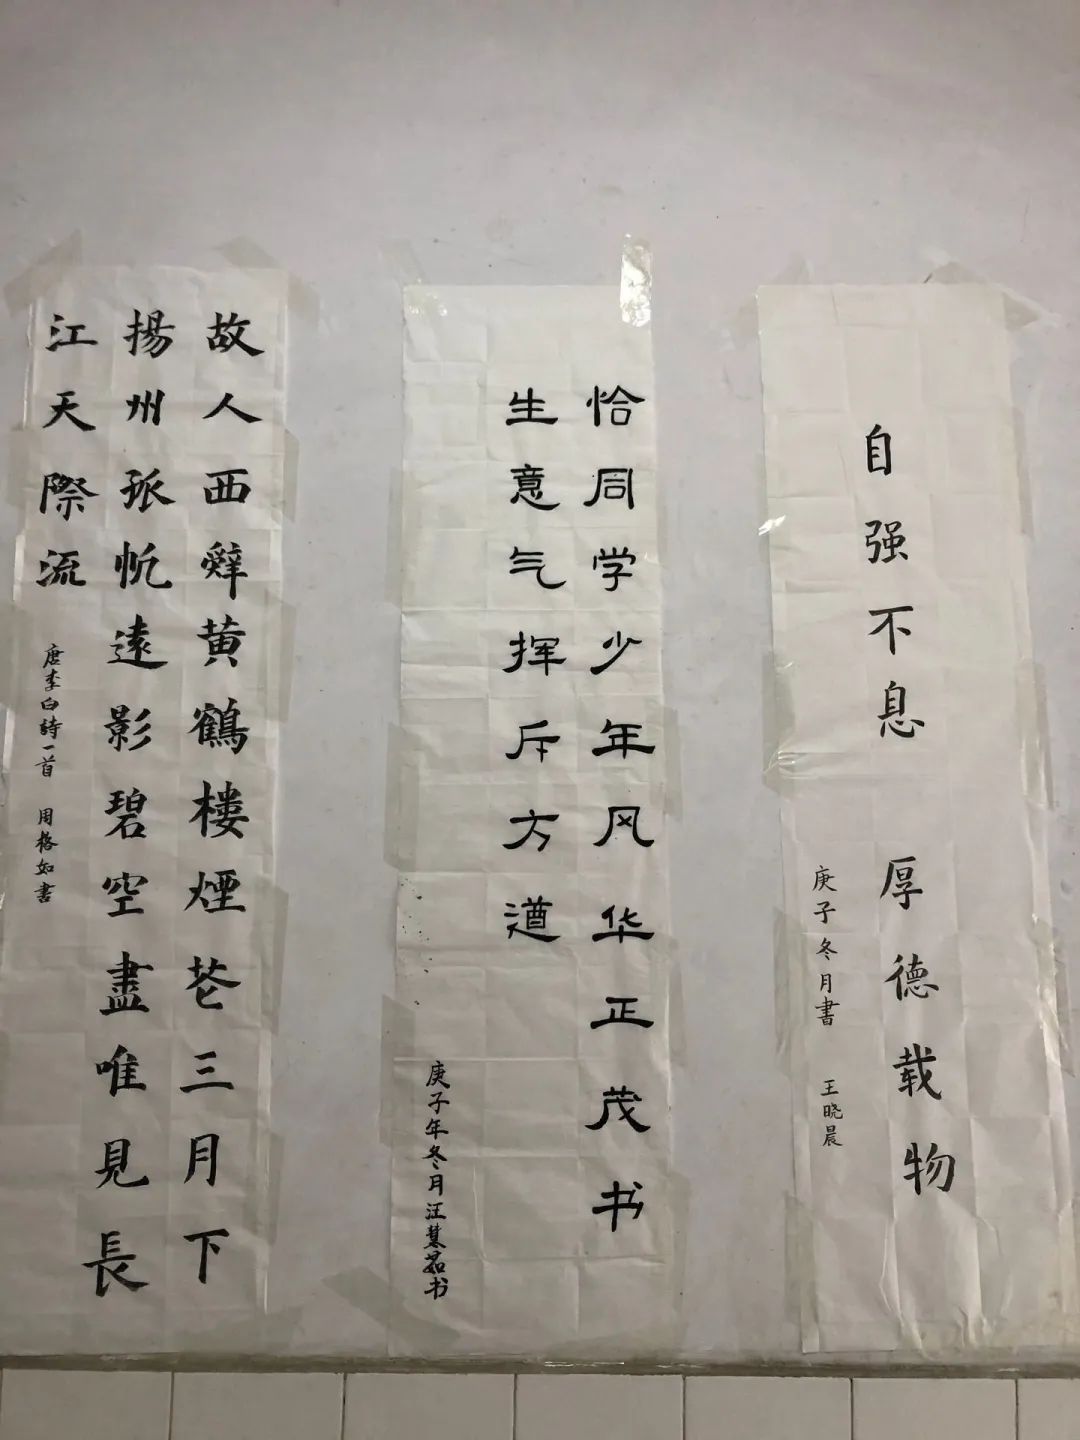 自强不息 厚德载物
庚子冬月書 王晓晨
恰同学少年风华正茂书
生意气挥斥方遒
庚子年冬月汪慧茹书
故人西辤黄鶴樓煙花三月下
揚州孤帆遠影碧空盡唯見長
江天際流
唐李白詩一首 周格如書